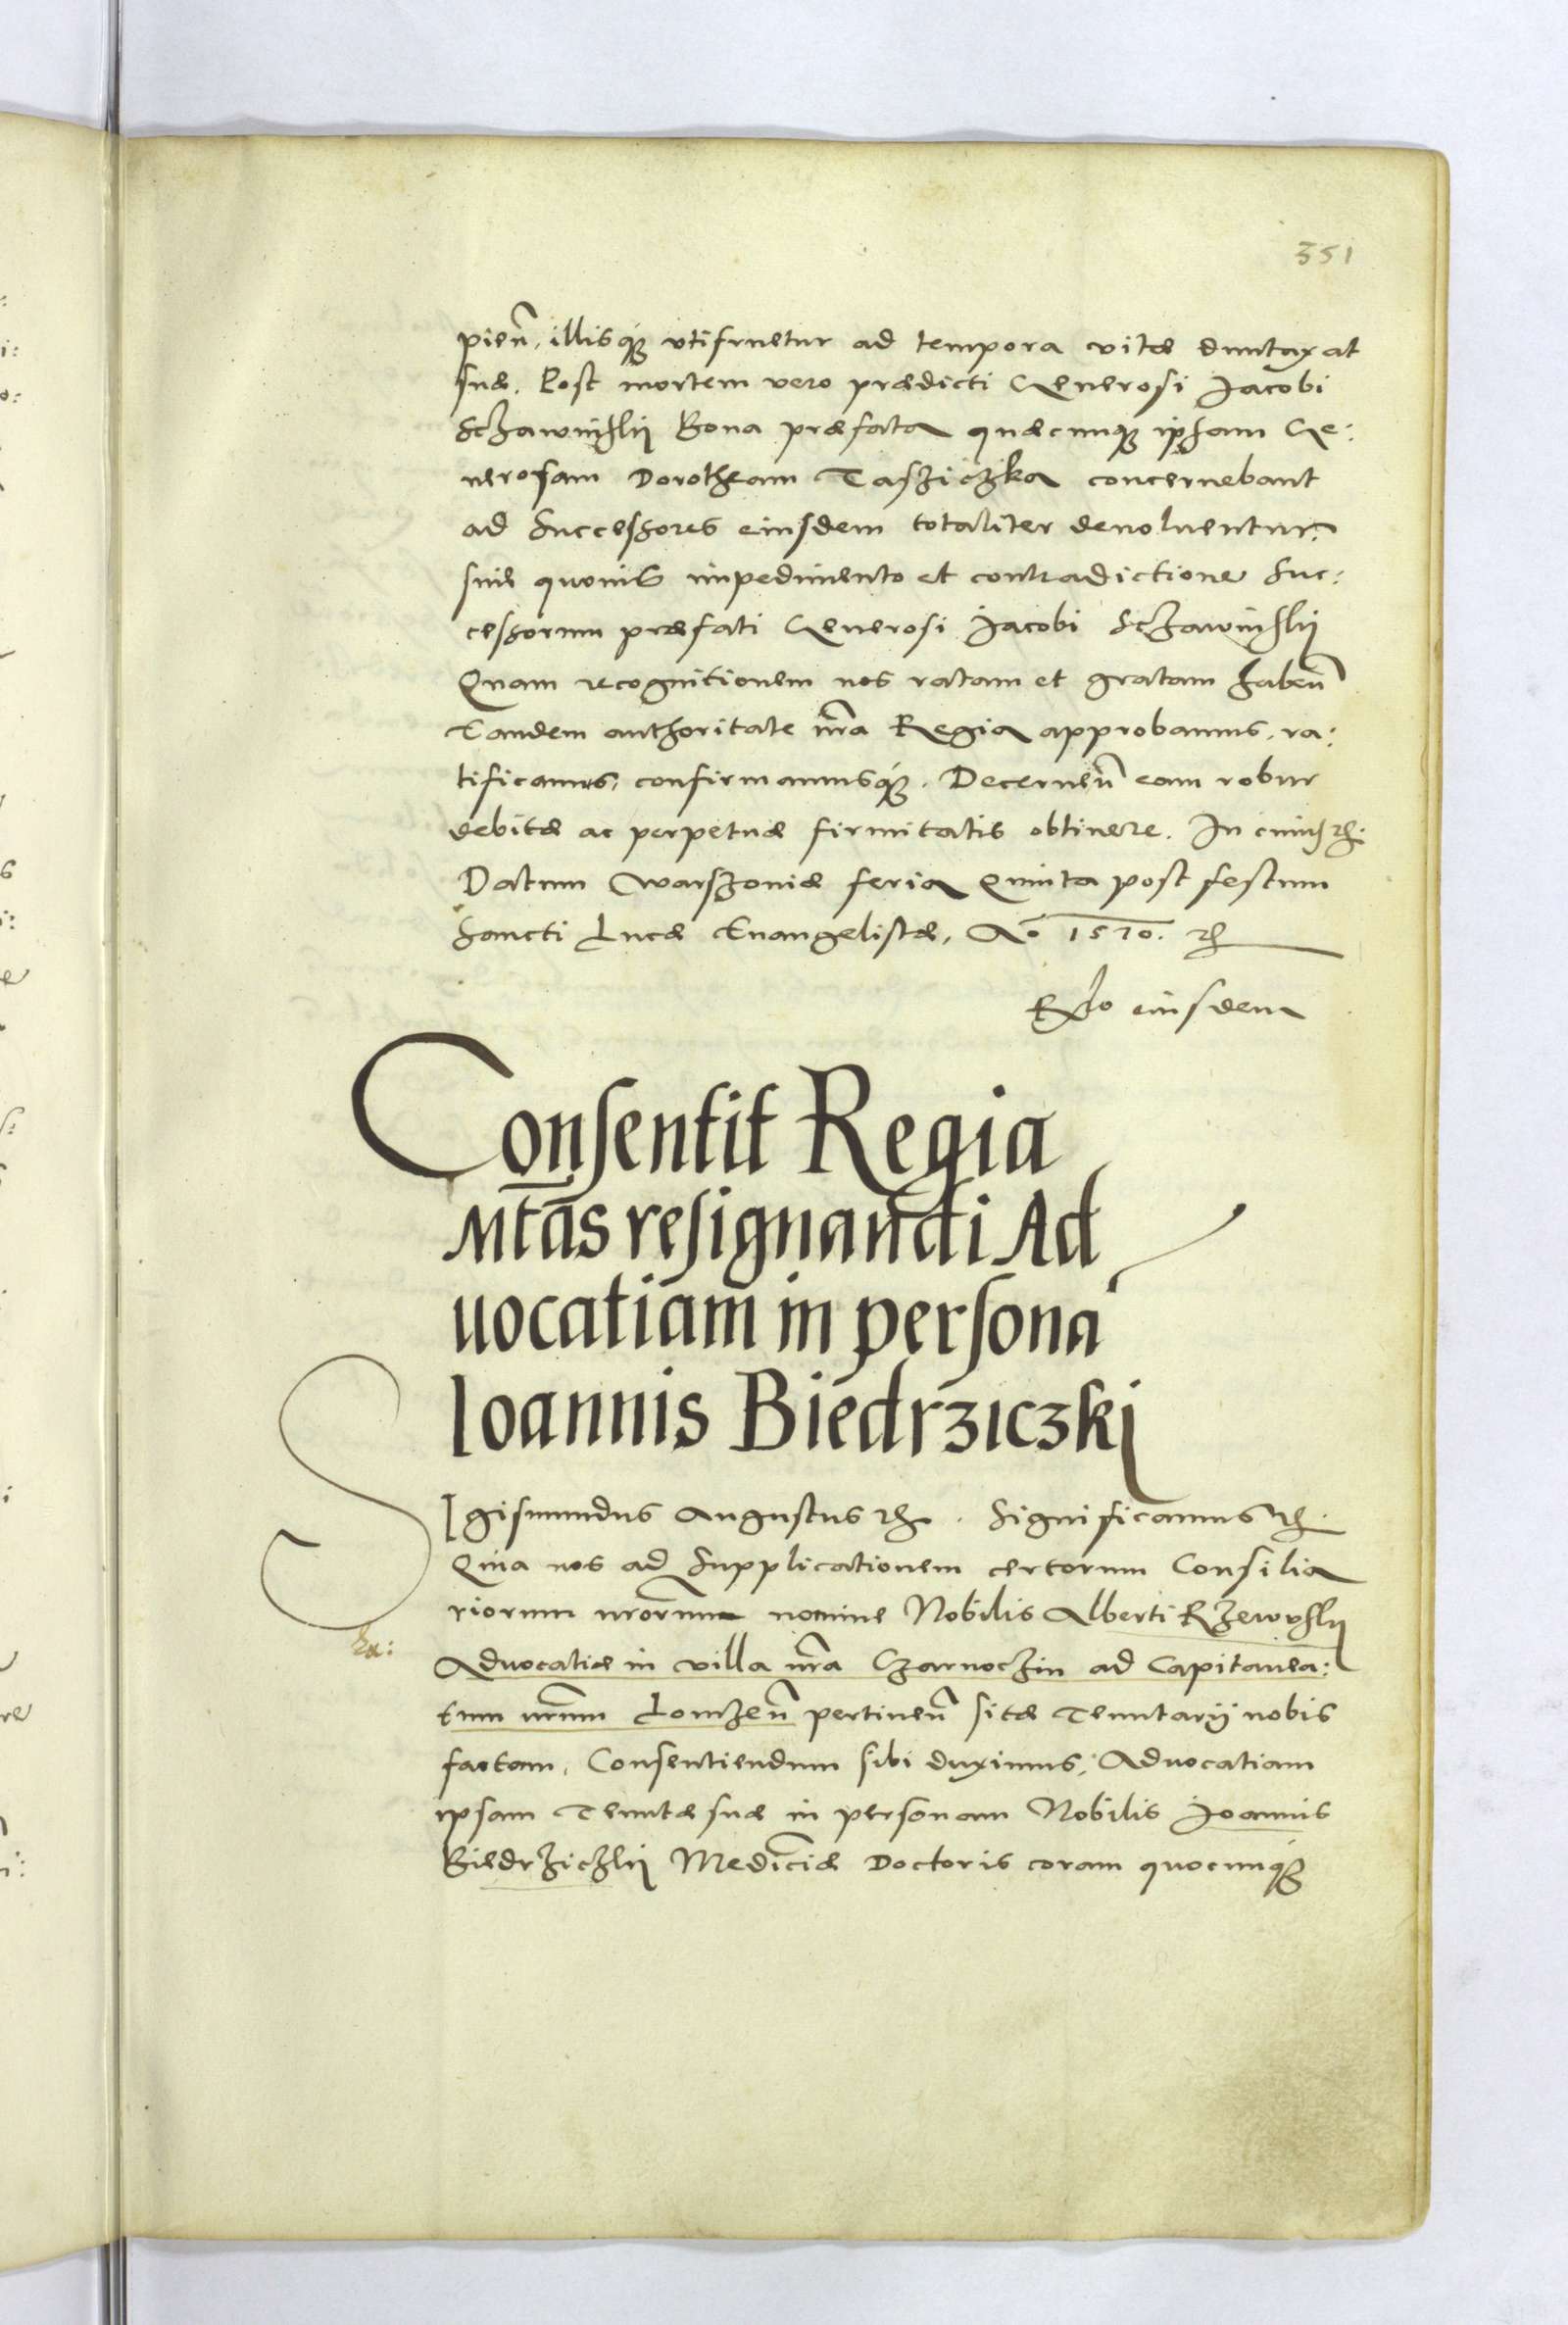 351
pien̄, illisq3 vtifruetur ad tempora vitæ duntaxat
suæ. Post mortem vero prædicti Generosi Jacobi
Sczawinskÿ Bona præfata quæcunq3 ipsam Ge:
nerosam Dorotheam Tasziczka concernebant
ad Successores eiusdem totaliter deuoluentur.
sine quouis impedimento et contradictione Suc:
cessorum præfati Generosi Jacobi Sczawinskÿ
Quam recognitionem nos ratam et gratam haben̄
Eandem authoritate nr̄a Regia approbamus, ra:
tificamus, confirmamusq3. Decernen̄ eam robur
debitæ ac perpetuæ firmitatis obtinere. In cuius rei etc.
Datum Warszouiæ feria Quinta post festum
Sancti Lucæ Euangelistæ, Ao 1570. etc.
Rlo eiusdem
Consentit Regia
Mtas resignandi Ad
uocatiam in persona
Ioannis Biedrziczki
SIgismundus Augustus etc. Significamus etc.
Quia nos ad Supplicationem certorum Consilia
riorum nrōrum nomine Nobilis Alberti Rzewuskÿ
Aduocatiæ in villa nr̄a Czarnoczin ad Capitanea:
tum nrūm Lomzen̄ pertinen̄ sitæ Tenutarÿ nobis
factam, Consentiendum sibi duximus, Aduocatiam
ipsam Tenutæ suæ in personam Nobilis Joannis
Biedrziczkÿ Medicīæ Doctoris coram quocunq3